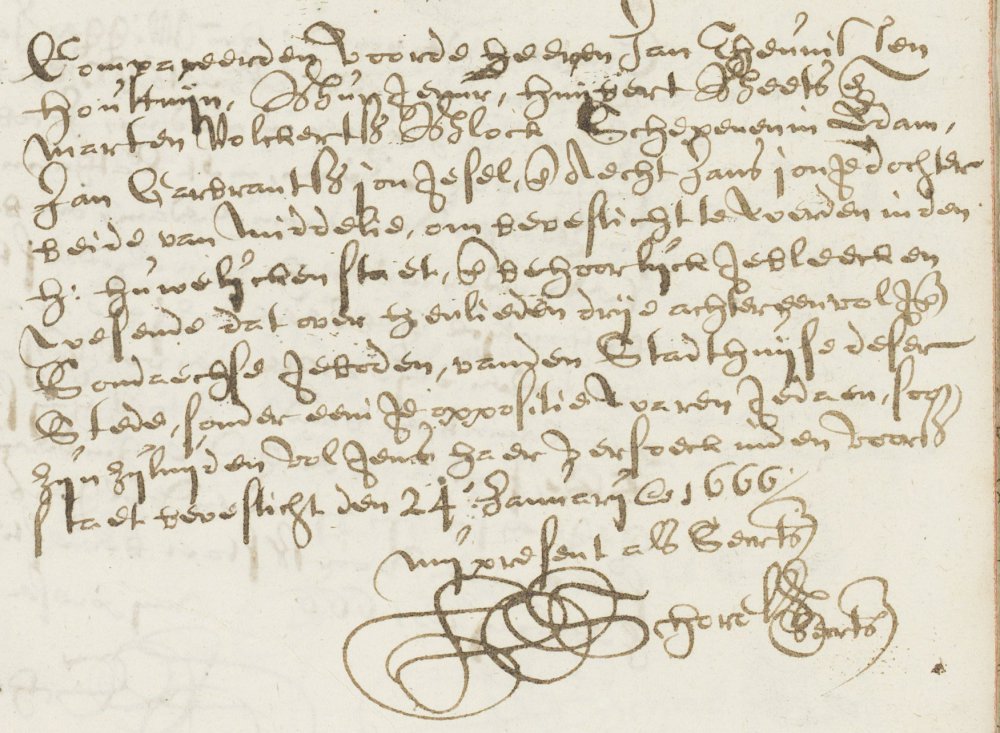 Compareerden voor de heeren Jan Theunissen
Houttuijn, Burgemr, Huijbert Beets en
Marten Volckertss Block Schepenen in Edam,
Jan Garbrantss jongesel, en Aecht Jans jongedochter
beide van Middelie, om bevesticht te werden inden
h: huwelijcken staet, en behoorlijck gebleecken
wesende dat over henlieden drije achtereenvolgen
Sondaechse geboden, vanden Stadthuijse deser
Stede, sonder eenige oppositie waren gedaen, soo
zijn zijluijden volgens haer versoeck inden voorss
staet bevesticht den 24e Januarij Ao 1666
mij present als Secrts
Schorel
Secrts